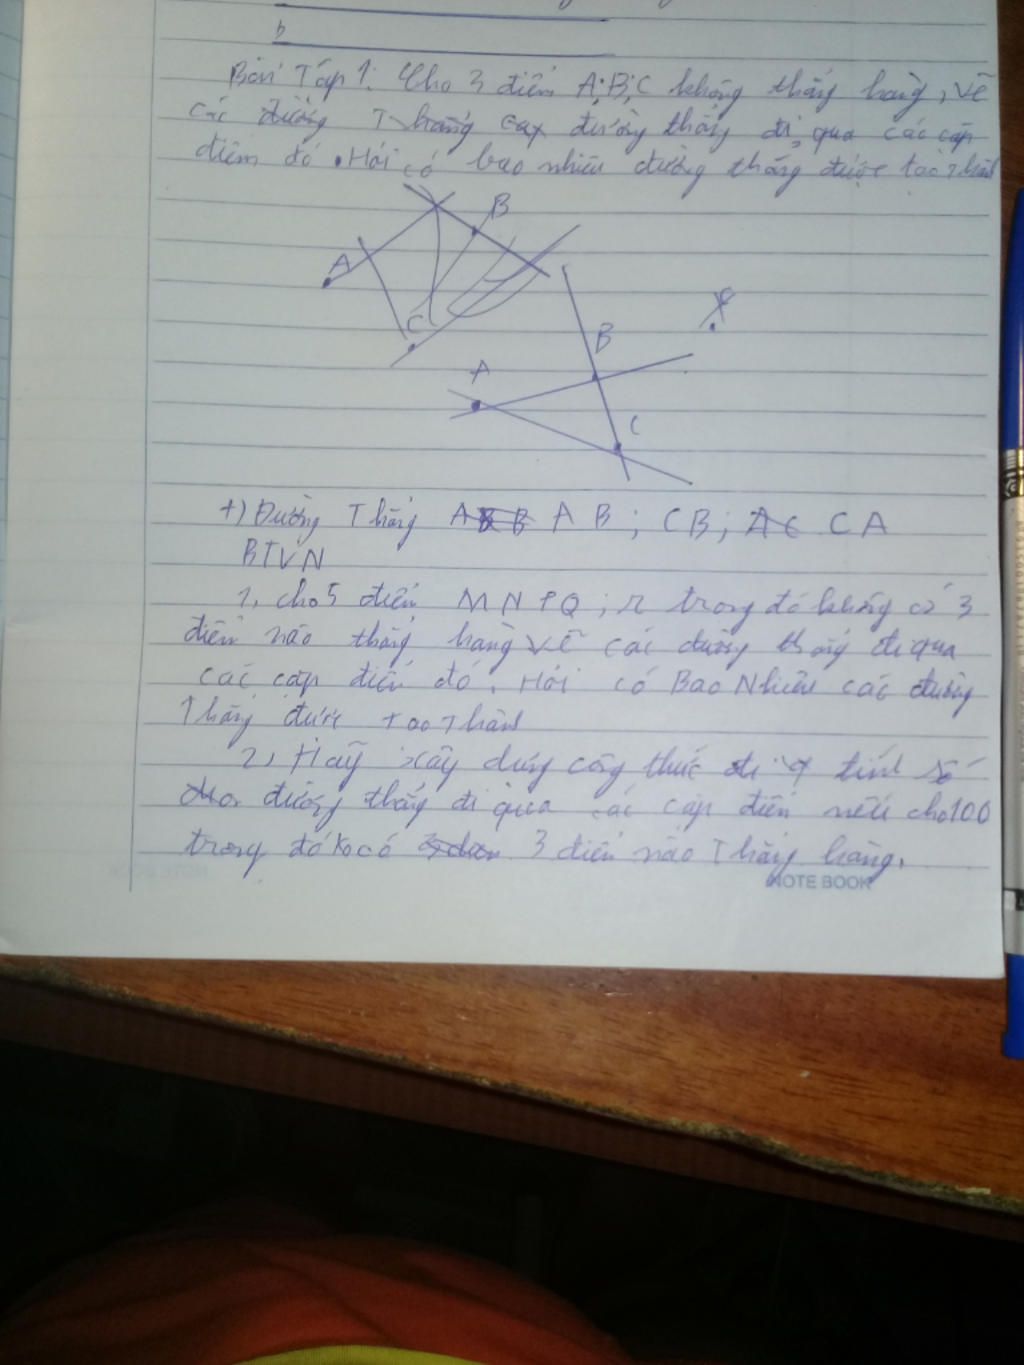 b
Bài Tập 1: Cho 3 điểm A;B;C không thẳng hàng, vẽ
các đường Thẳng cax đường thẳng đi qua các cặp
điểm đó. Hỏi có bao nhiêu đường thẳng được tạo Thành
B
A
C
B
A
C
+) Đường Thẳng A B ; CB; AC CA
BTVN
1, cho 5 điểm MNPQ; R trong đó không có 3
điểm nào thẳng hàng vẽ các đường thẳng đi qua
các cặp điểm đó. Hỏi có Bao Nhiêu các đường
Thẳng được tạo Thành
2, Hãy xây dựng công thức tính số
đường thẳng đi qua các cặp điểm nếu cho 100
trong đó ko có 3 điểm nào Thẳng hàng.
NOTE BOOK